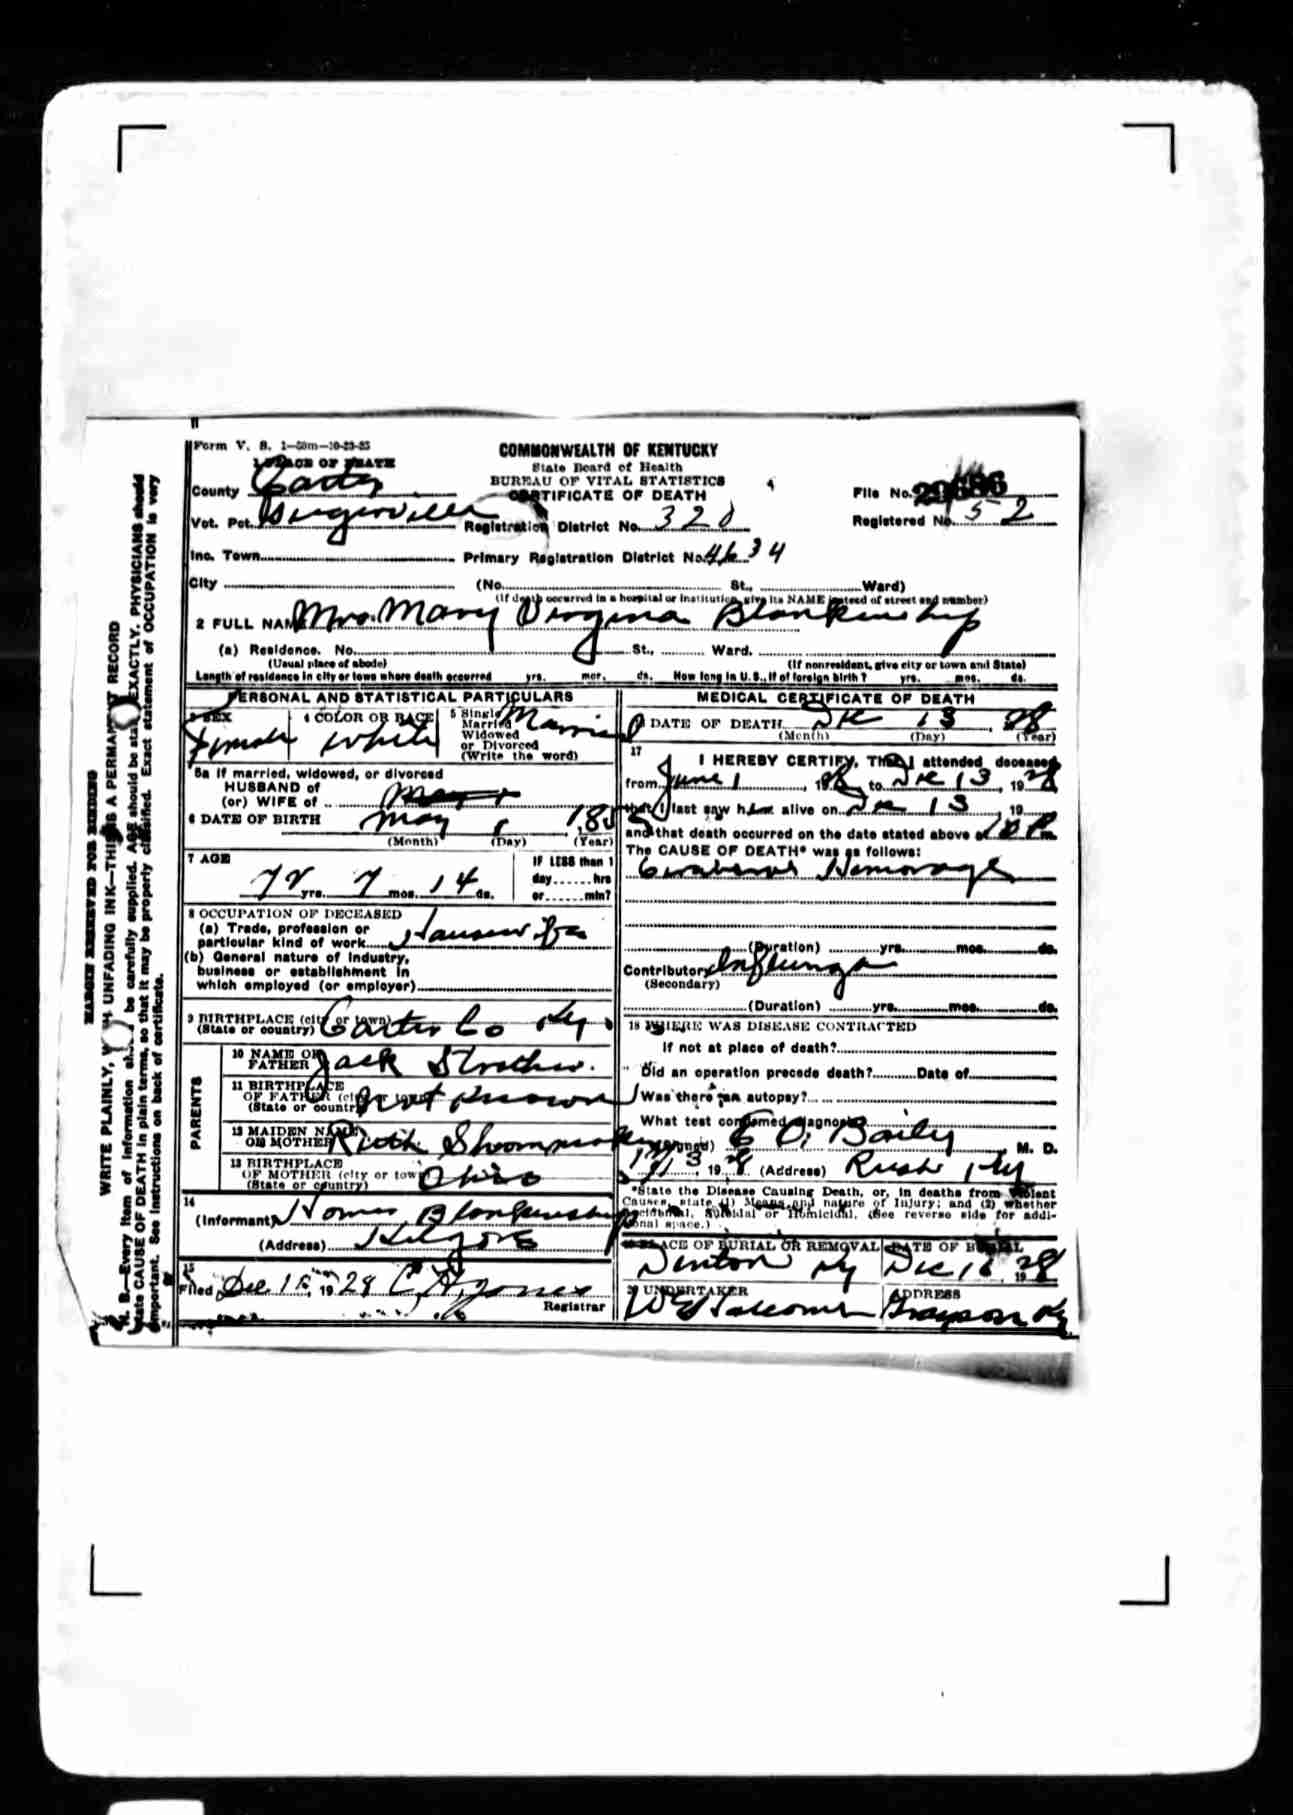 Form V. S. 1-50m-10-23-25
COMMONWEALTH OF KENTUCKY
State Board of Health
BUREAU OF VITAL STATISTICS
CERTIFICATE OF DEATH
1 PLACE OF DEATH
County Carter
Vot. Pct.
Inc. Town
City
File No. 29686
Registered No. 52
Registration District No. 320
Primary Registration District No. 4634
(No. St., Ward)
(If death occurred in a hospital or institution, give its NAME instead of street and number)
2 FULL NAME Mrs. Mary Virginia Blankenship
(a) Residence. No. St., Ward.
(Usual place of abode) (If nonresident, give city or town and State)
Length of residence in city or town where death occurred yrs. mos. ds. How long in U. S., if of foreign birth? yrs. mos. ds.
PERSONAL AND STATISTICAL PARTICULARS
3 SEX Female
4 COLOR OR RACE White
5 Single Married Widowed or Divorced (Write the word) Married
5a If married, widowed, or divorced
HUSBAND of
(or) WIFE of
6 DATE OF BIRTH May
(Month) (Day) (Year)
7 AGE
72 yrs. 7 mos. 14 ds.
IF LESS than 1
day hrs
or min?
8 OCCUPATION OF DECEASED
(a) Trade, profession or
particular kind of work Housewife
(b) General nature of industry,
business or establishment in
which employed (or employer)
9 BIRTHPLACE (city or town)
(State or country) Carter Co Ky.
PARENTS
10 NAME OF FATHER Jack Strother.
11 BIRTHPLACE OF FATHER (city or town) (State or country) Not Known
12 MAIDEN NAME OF MOTHER Ruth
13 BIRTHPLACE OF MOTHER (city or town) (State or country) Ohio
14
(Informant) Homer Blankenship
(Address) Kilgore
15
Filed Dec 15, 1928 C. H. Jones
Registrar
MEDICAL CERTIFICATE OF DEATH
DATE OF DEATH Dec 13, 28
(Month) (Day) (Year)
17
I HEREBY CERTIFY, That I attended deceased
from June 1, 1928, to Dec 13, 1928
that I last saw her alive on Dec 13, 19
and that death occurred on the date stated above at 10 P m.
The CAUSE OF DEATH* was as follows:
Cerebral Hemorage
(Duration) yrs. mos. ds.
Contributory Influenza
(Secondary)
(Duration) yrs. mos. ds.
18 WHERE WAS DISEASE CONTRACTED
If not at place of death?
Did an operation precede death? Date of
Was there an autopsy?
What test confirmed diagnosis?
(Signed) E O. Baily M. D.
19 28 (Address) Rush, Ky
*State the Disease Causing Death, or, in deaths from Violent
Causes, state (1) Means and nature of Injury; and (2) whether
Accidental, Suicidal or Homicidal. (See reverse side for addi-
tional space.)
19 PLACE OF BURIAL OR REMOVAL Denton Ky
DATE OF BURIAL Dec 16, 1928
20 UNDERTAKER
ADDRESS Grayson Ky
MARGIN RESERVED FOR BINDING
WRITE PLAINLY, WITH UNFADING INK—THIS IS A PERMANENT RECORD
N. B.—Every item of information should be carefully supplied. AGE should be stated EXACTLY. PHYSICIANS should
state CAUSE OF DEATH in plain terms, so that it may be properly classified. Exact statement of OCCUPATION is very
important. See instructions on back of certificate.